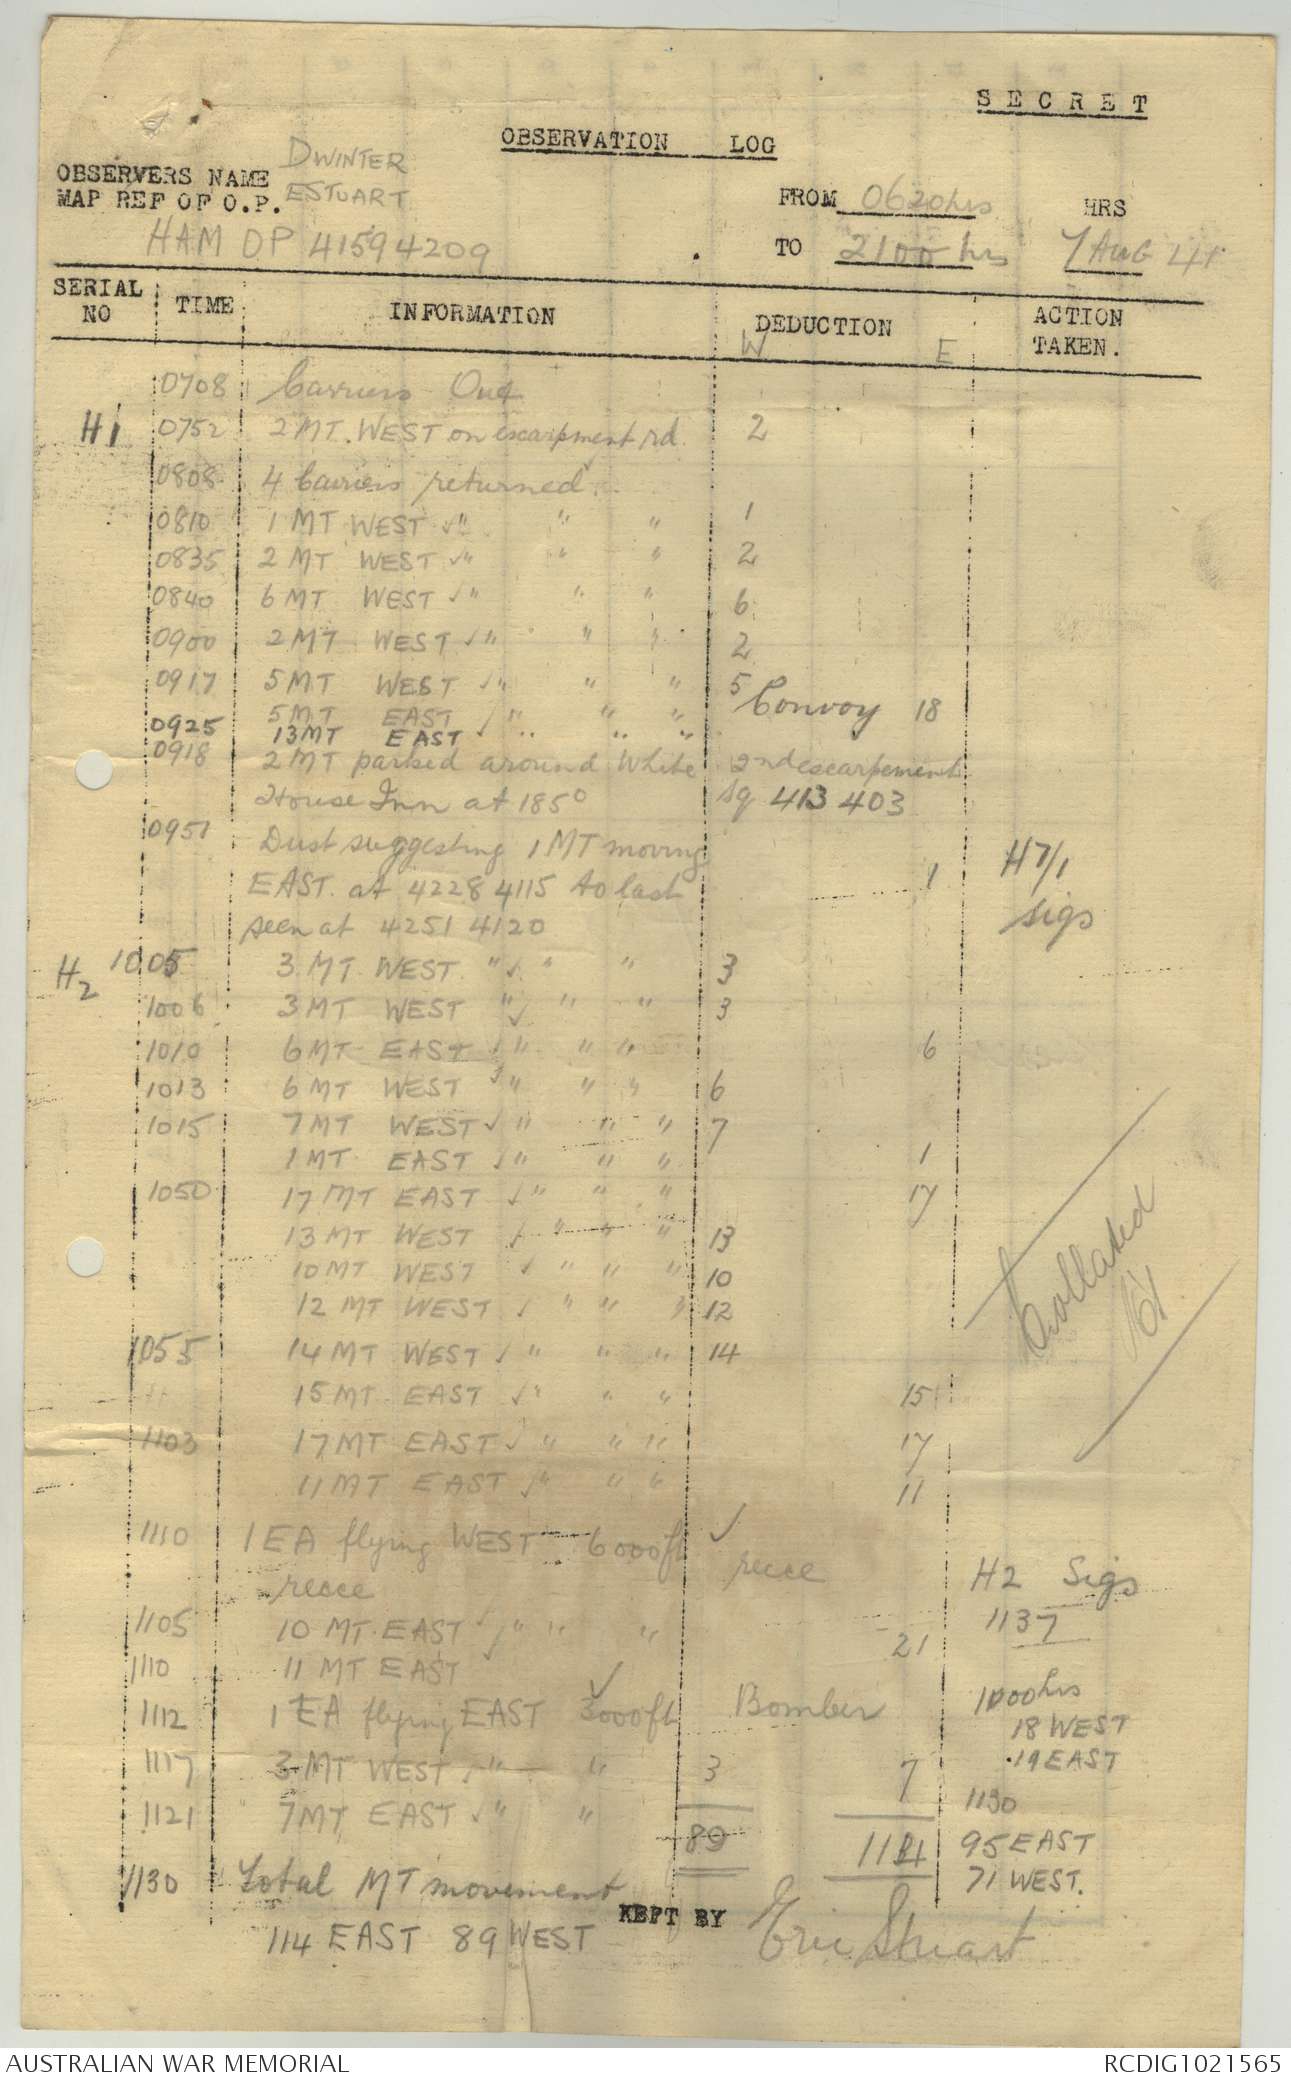 SECRET
OBSERVATION LOG
OBSERVERS NAME D WINTER
E STUART
MAP REF OF O.P.
HAM OP 41594209
FROM 0620hrs HRS
TO 2100 hrs 7 AUG 41
SERIAL NO TIME INFORMATION DEDUCTION ACTION TAKEN.
W E
0708 Carriers Out
H1 0752 2 MT. WEST on escarpment rd. 2
0808 4 Carriers returned.
0810 1 MT WEST ✓ " " " 1
0835 2 MT WEST ✓ " " " 2
0840 6 MT WEST ✓ " " " 6
0900 2 MT WEST ✓ " " " 2
0917 5 MT WEST ✓ " " " 5
5 MT EAST ✓ " " " Convoy 18
0925 13 MT EAST ✓ " " "
0918 2 MT parked around White 2nd escarpement
House Inn at 185° Sq 413 403
0951 Dust suggesting 1 MT moving
EAST. at 4228 4115 to last 1 H7/1
seen at 4251 4120 sigs
H2 1005 3 MT WEST " ✓ " " 3
1006 3 MT WEST " ✓ " " 3
1010 6 MT EAST ✓ " " " 6
1013 6 MT WEST ✓ " " " 6
1015 7 MT WEST ✓ " " " 7
1 MT EAST ✓ " " " 1
1050 17 MT EAST ✓ " " " 17
13 MT WEST ✓ " " " 13
10 MT WEST ✓ " " " 10
12 MT WEST ✓ " " " 12
1055 14 MT WEST ✓ " " " 14
" 15 MT EAST ✓ " " " 15
1103 17 MT EAST ✓ " " " 17
11 MT EAST ✓ " " " 11
Collated
1110 1 EA flying WEST 6000ft ✓
recce recce H2 Sigs
1137
1105 10 MT EAST ✓ " " " 21
1110 11 MT EAST ✓
1112 1 EA flying EAST 3000ft ✓ Bomber 1000hrs
18 WEST
1117 3 MT WEST ✓ " " 3 7 19 EAST
1121 7 MT EAST ✓ " " 1130
89 114 95 EAST
71 WEST.
1130 Total MT movement
114 EAST 89 WEST
KEPT BY Eric Stuart
AUSTRALIAN WAR MEMORIAL RCDIG1021565